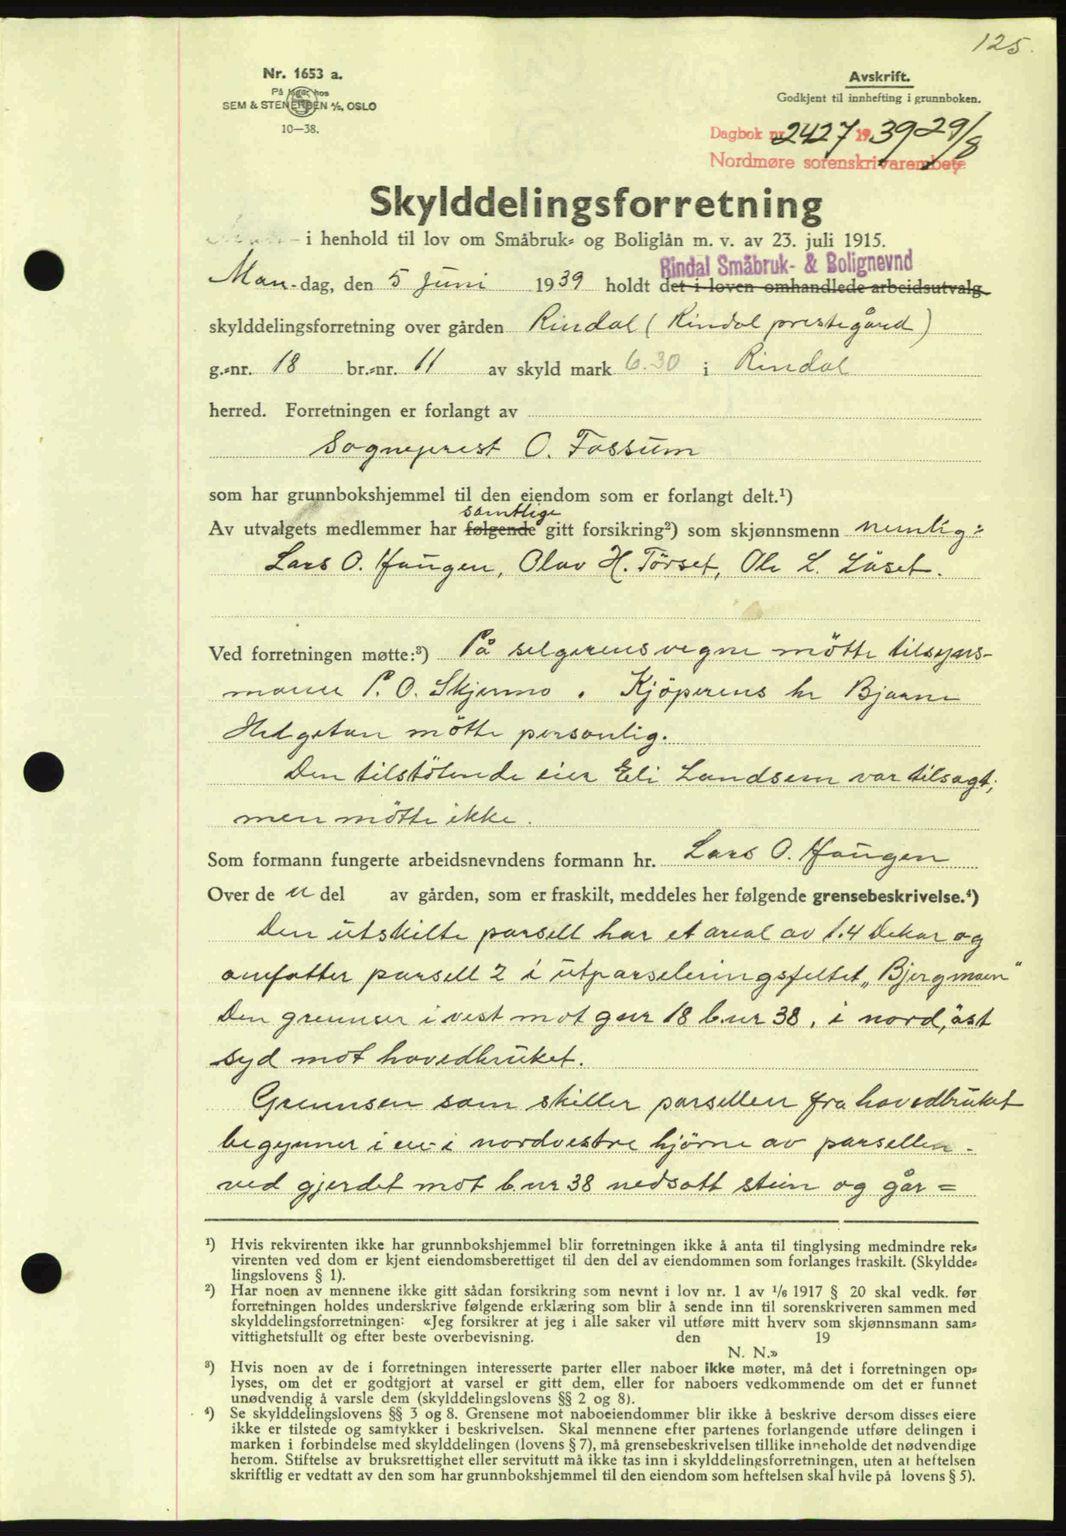 125.
Nr. 1653 a.
På lager hos
SEM & STENERSEN A/S, OSLO
10—38.
Avskrift.
Godkjent til innhefting i grunnboken.
Dagbok nr. 2427 1939 29/8
Nordmøre sorenskrivarembete
Skylddelingsforretning
i henhold til lov om Småbruk- og Boliglån m. v. av 23. juli 1915.
Rindal Småbruk- & Bolignevnd
Man-dag, den 5 Juni 1939 holdt det i loven omhandlede arbeidsutvalg
skylddelingsforretning over gården Rindal (Rindal prestegård)
g.-nr. 18 br.-nr. 11 av skyld mark 6.30 i Rindal
herred. Forretningen er forlangt av
Sogneprest O. Fossum
som har grunnbokshjemmel til den eiendom som er forlangt delt.¹)
samtlige
Av utvalgets medlemmer har følgende gitt forsikring²) som skjønnsmenn nemlig:
Lars O. Haugen, Olav H. Törset, Ole L. Löset.
Ved forretningen møtte:³) På selgerens vegne mötte tilsyns-
mann P. O. Skjermo. Kjöperens hr Bjarne
Helgetun mötte personlig.
Den tilstötende eier Eli Landsem var tilsagt,
men mötte ikke.
Som formann fungerte arbeidsnevndens formann hr. Lars O. Haugen
Over de n del av gården, som er fraskilt, meddeles her følgende grensebeskrivelse.⁴)
Den utskilte parsell har et areal av 1.4 Dekar og
omfatter parsell 2 i utparseleringsfeltet „Bjergmoen“
Den grenser i vest mot gnr 18 b.nr 38, i nord, öst
syd mot hovedbruket.
Grensen som skiller parsellen fra hovedbruket
begynner i en i nordvestre hjörne av parsellen
ved gjerdet mot b.nr 38 nedsatt stein og går =
¹) Hvis rekvirenten ikke har grunnbokshjemmel blir forretningen ikke å anta til tinglysing medmindre rek-
virenten ved dom er kjent eiendomsberettiget til den del av eiendommen som forlanges fraskilt. (Skyldde-
lingslovens § 1).
²) Har noen av mennene ikke gitt sådan forsikring som nevnt i lov nr. 1 av 1/6 1917 § 20 skal vedk. før
forretningen holdes underskrive følgende erklæring som blir å sende inn til sorenskriveren sammen med
skylddelingsforretningen: «Jeg forsikrer at jeg i alle saker vil utføre mitt hverv som skjønnsmann sam-
vittighetsfullt og efter beste overbevisning. den 19
N. N.»
³) Hvis noen av de i forretningen interesserte parter eller naboer ikke møter, må det i forretningen op-
lyses, om det er godtgjort at varsel er gitt dem, eller for naboers vedkommende om det er funnet
unødvendig å varsle dem (skylddelingslovens §§ 2 og 8).
⁴) Se skylddelingslovens §§ 3 og 8. Grensene mot naboeiendommer blir ikke å beskrive dersom disses eiere
ikke er tilstede og samtykker i beskrivelsen. Skal mennene efter partenes forlangende utføre delingen i
marken i forbindelse med skylddelingen (lovens § 7), må grensebeskrivelsen tillike inneholde det nødvendige
herom. Stiftelse av bruksrettighet eller servitutt må ikke tas inn i skylddelingsforretningen, uten at heftelsen
skriftlig er vedtatt av den som har grunnbokshjemmel til den eiendom som heftelsen skal hvile på lovens § 5).